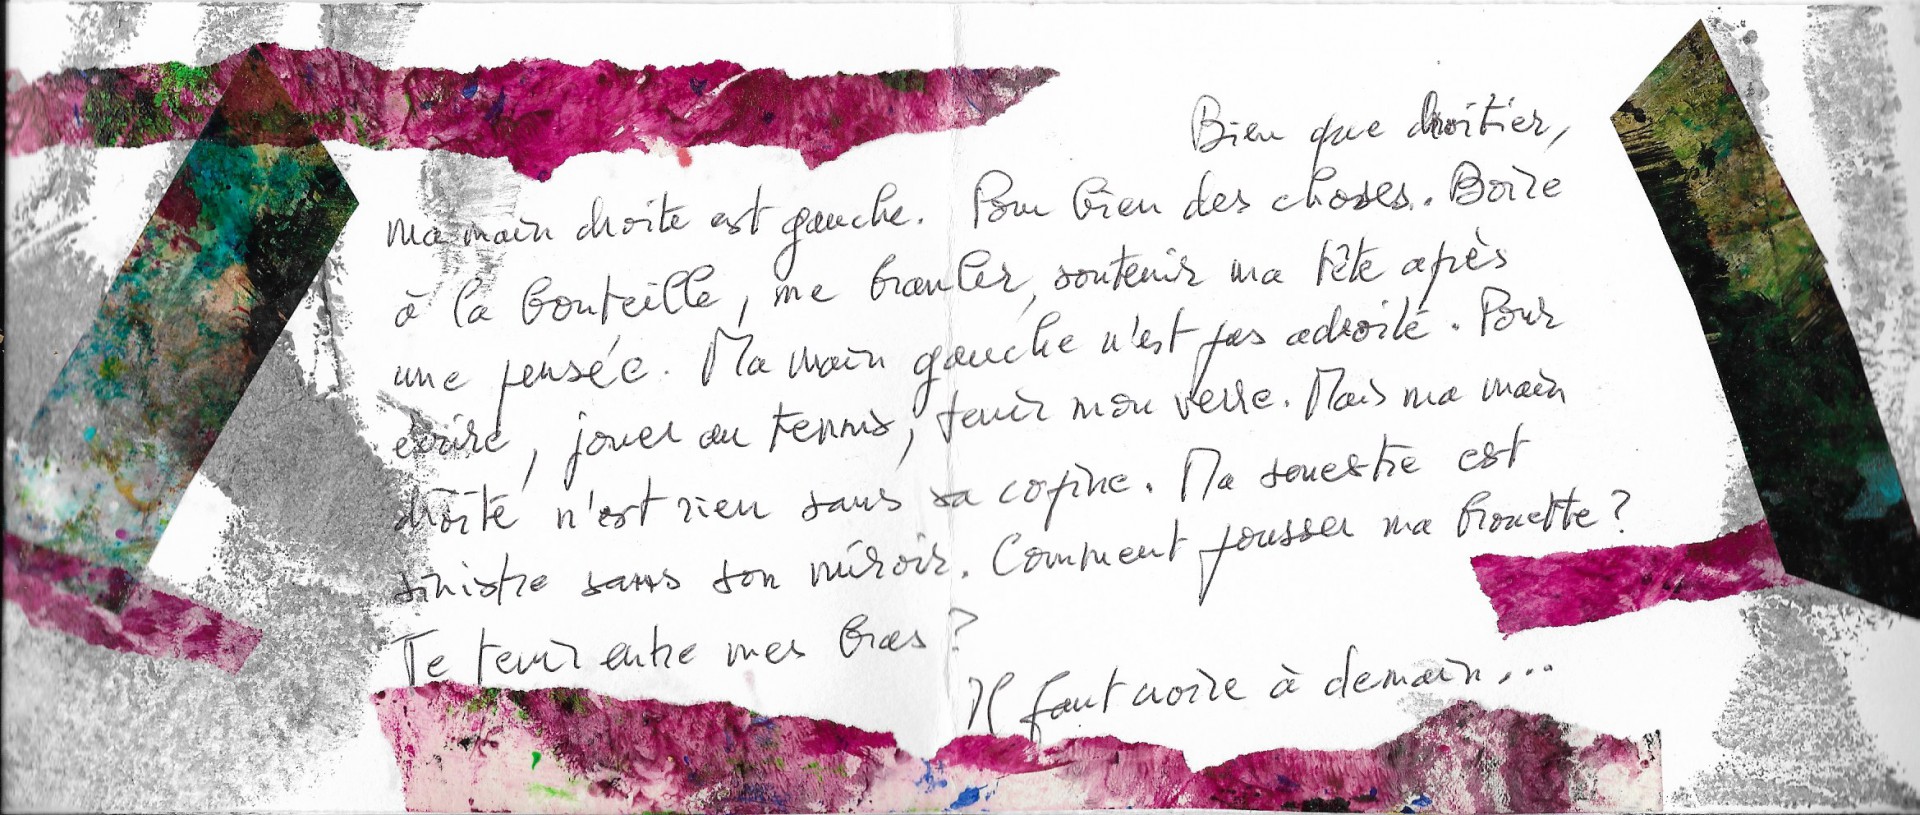 Bien que droitier,
ma main droite est gauche. Pour bien des choses. Boire
à la bouteille, me branler, soutenir ma tête après
une pensée. Ma main gauche n'est pas adroite. Pour
écrire, jouer au tennis, tenir mon verre. Mais ma main
droite n'est rien sans sa copine. Ma senestre est
sinistre sans son miroir. Comment pousser ma brouette?
Te tenir entre mes bras?
Il faut croire à demain...